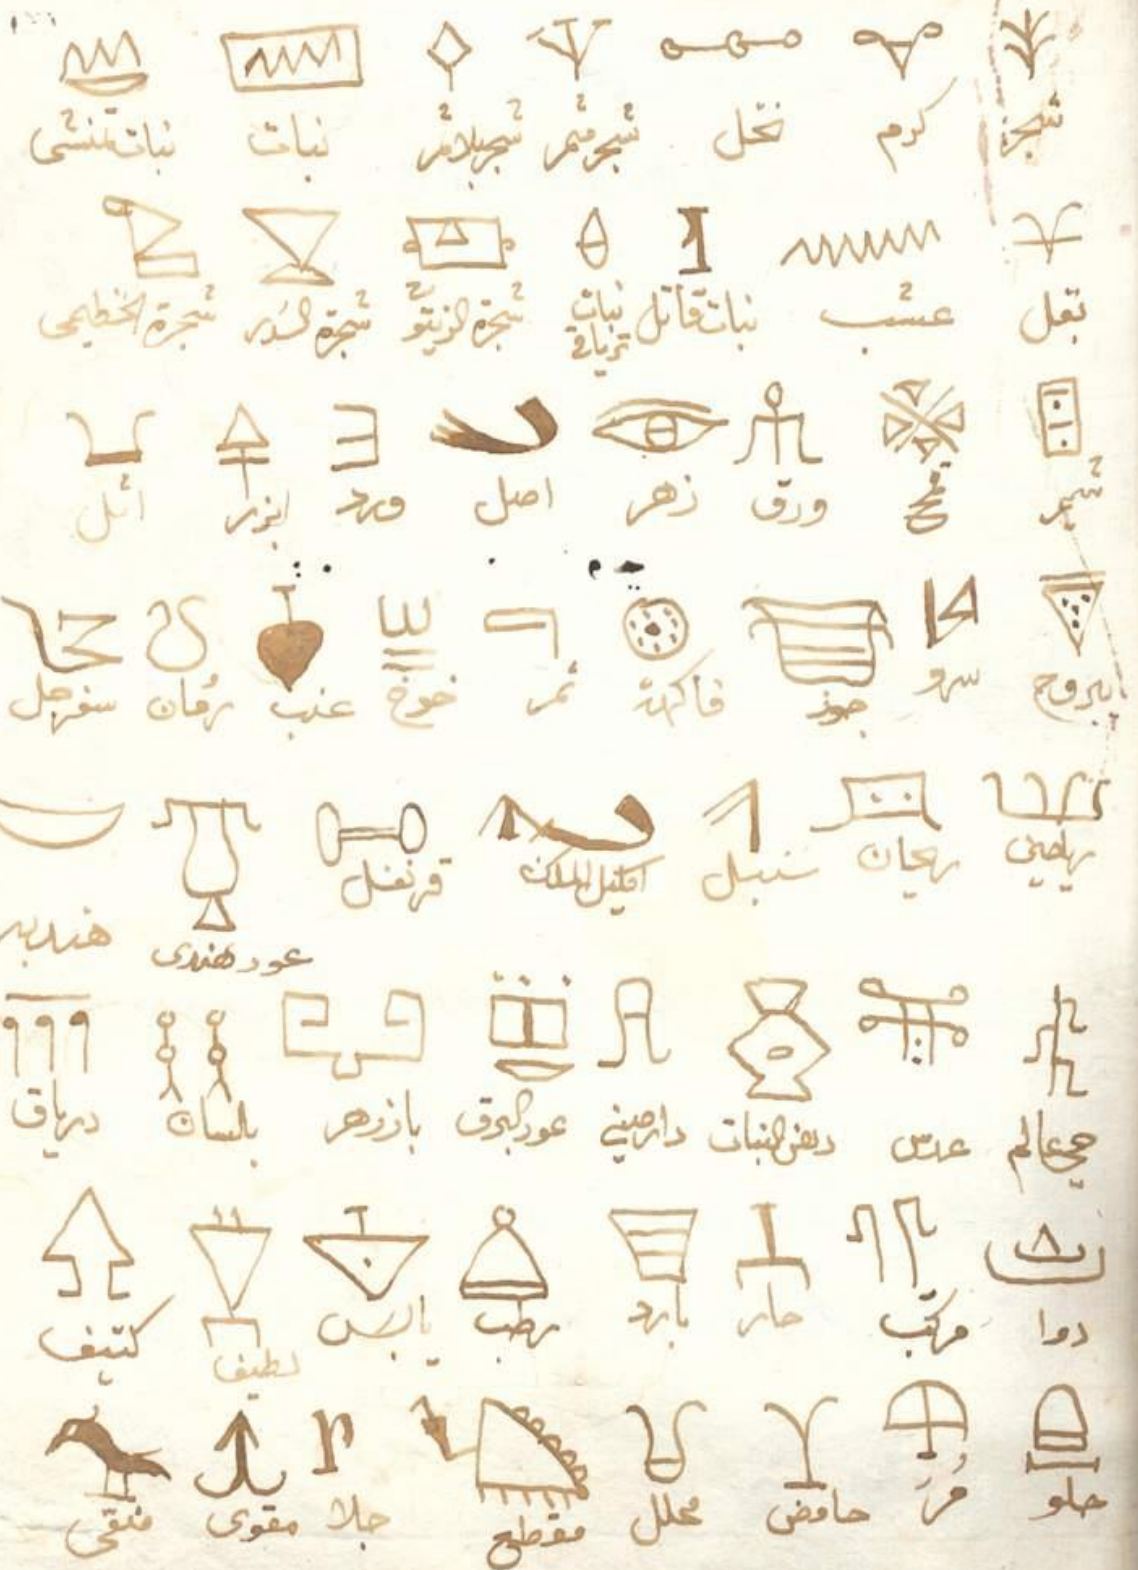 شجرة كرم نخل شجر مثمر شجر بلا ثمر نبات نبات منشى
بقل عشب نبات قاتل نبات ترياق شجرة الزيتو شجرة السدر شجرة الخطمى
قمح ورق زهر اصل ورد ابزار اثل
يبروح سرو جوز فاكهة ثمر خوخ عنب رمان سفرجل
ريحان سنبل اكليل الملك قرنفل عود هندى
حى عالم عدس دهن النبات دار صيني عود البرق بازهر بلسان درياق
دوا مركب حار بارد رطب يابس لطيف كثيف
حلو مر حامض محلل مقطع جلا مقوى منقى